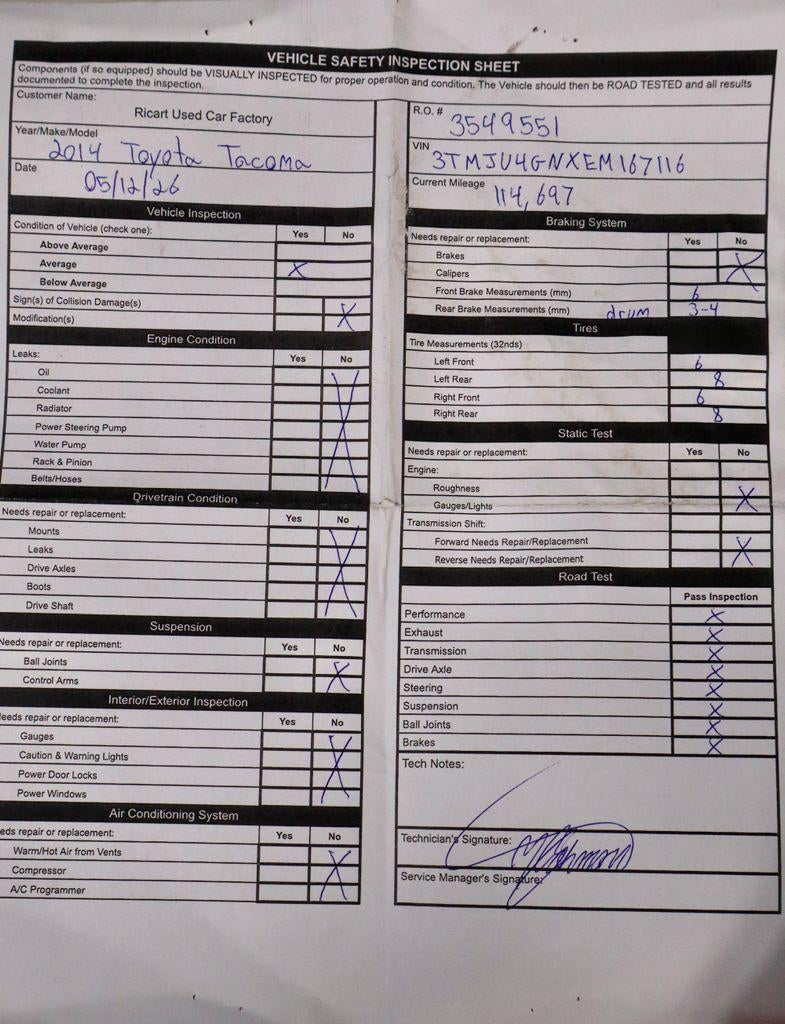 VEHICLE SAFETY INSPECTION SHEET
Components (if so equipped) should be VISUALLY INSPECTED for proper operation and condition. The Vehicle should then be ROAD TESTED and all results
documented to complete the inspection.
Customer Name:
Ricart Used Car Factory
Year/Make/Model
2014 Toyota Tacoma
Date
05/12/26
R.O. #
3549551
VIN
3TMJU4GNXEM167116
Current Mileage
114,697
Vehicle Inspection
Condition of Vehicle (check one): Yes No
Above Average
Average X
Below Average
Sign(s) of Collision Damage(s)
Modification(s) X
Engine Condition
Leaks: Yes No
Oil
Coolant
Radiator
Power Steering Pump X
Water Pump
Rack & Pinion
Belts/Hoses
Drivetrain Condition
Needs repair or replacement: Yes No
Mounts
Leaks
Drive Axles X
Boots
Drive Shaft
Suspension
Needs repair or replacement: Yes No
Ball Joints
Control Arms X
Interior/Exterior Inspection
eeds repair or replacement: Yes No
Gauges
Caution & Warning Lights X
Power Door Locks
Power Windows
Air Conditioning System
eds repair or replacement: Yes No
Warm/Hot Air from Vents
Compressor X
A/C Programmer
Braking System
Needs repair or replacement: Yes No
Brakes X
Calipers
Front Brake Measurements (mm) 6
Rear Brake Measurements (mm) drum 3-4
Tires
Tire Measurements (32nds)
Left Front 6
Left Rear 8
Right Front 6
Right Rear 8
Static Test
Needs repair or replacement: Yes No
Engine:
Roughness
Gauges/Lights X
Transmission Shift:
Forward Needs Repair/Replacement
Reverse Needs Repair/Replacement X
Road Test
Pass Inspection
Performance X
Exhaust X
Transmission X
Drive Axle X
Steering X
Suspension X
Ball Joints X
Brakes X
Tech Notes:
Technician's Signature:
Service Manager's Signature: